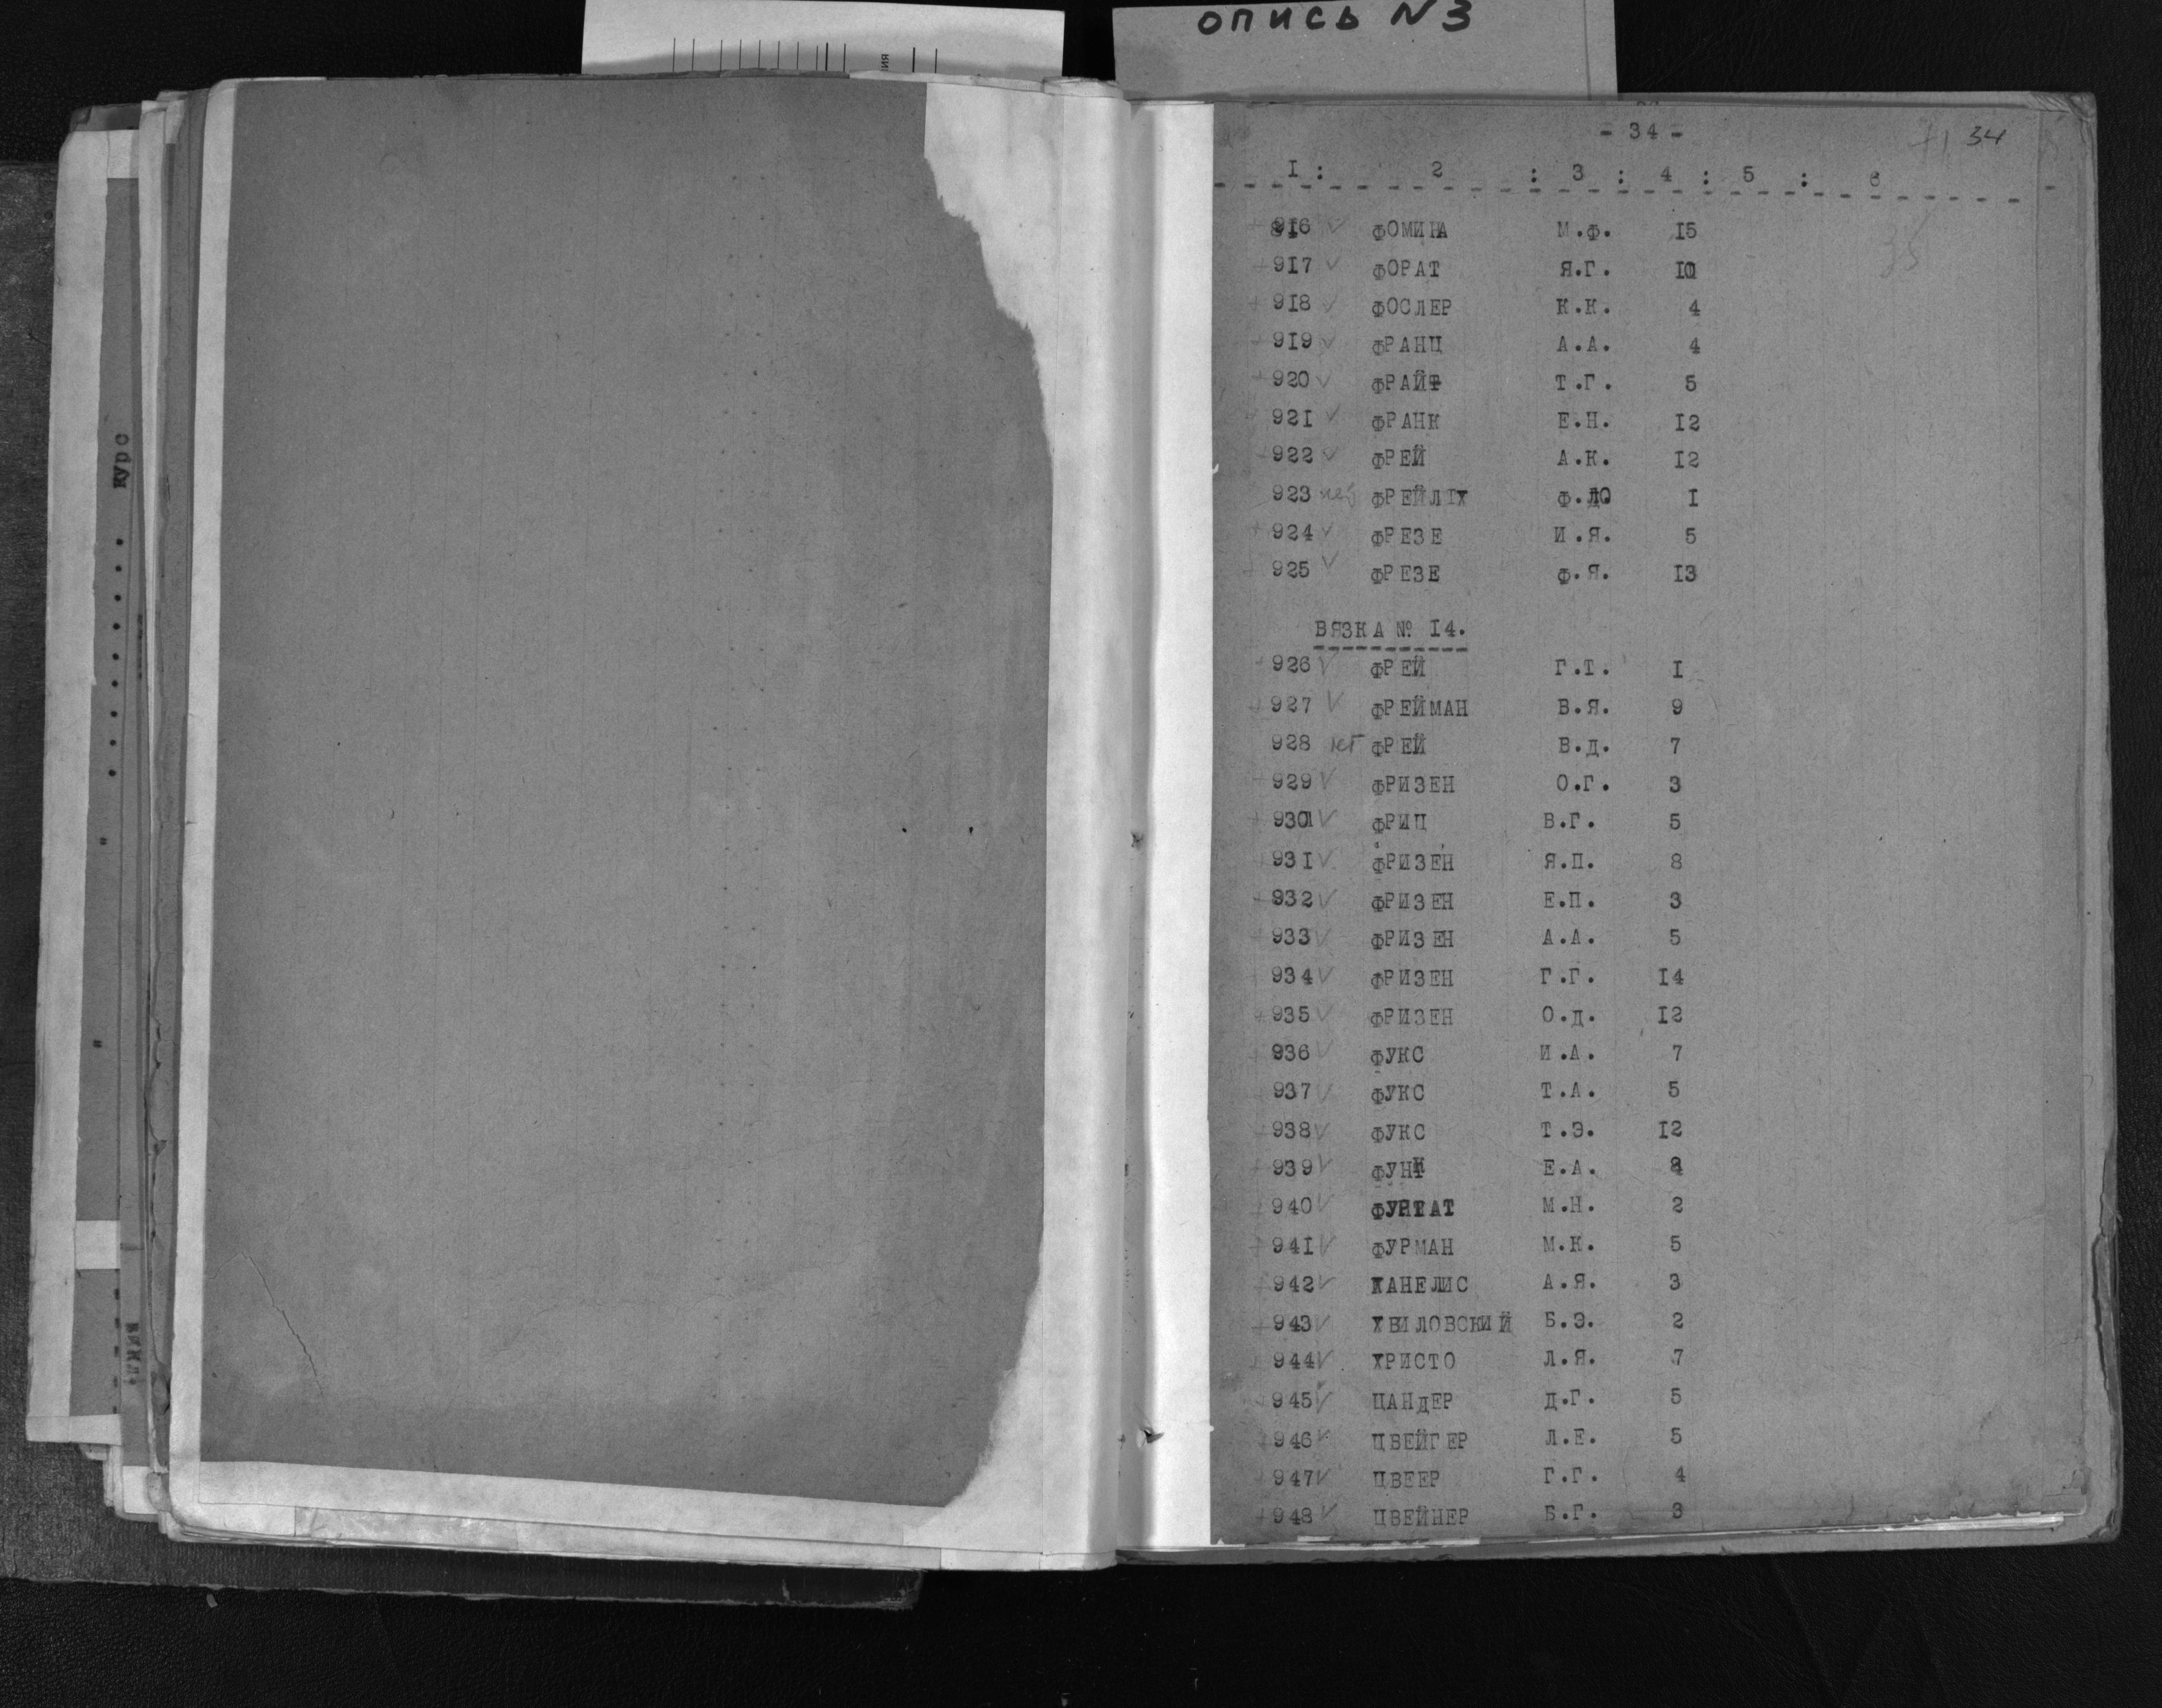 опись N 3
ия
курс
"
"
- 34 -
34
35
I : 2 : 3 : 4 : 5 : 6
916 ФОМИНА М.Ф. I5
9I7 ФОРАТ Я.Г. I0
9I8 ФОСЛЕР К.К. 4
9I9 ФРАНЦ А.А. 4
920 ФРАЙ Т.Г. 5
92I ФРАНК Е.Н. I2
922 ФРЕЙ А.К. I2
923 нет ФРЕЙЛІХ Ф. I
924 ФРЕЗЕ И.Я. 5
925 ФРЕЗЕ Ф.Я. I3
ВЯЗКА № I4.
926 ФРЕЙ Г.Т. I
927 ФРЕЙМАН В.Я. 9
928 нет ФРЕЙ В.Д. 7
929 ФРИЗЕН О.Г. 3
930 ФРИЦ В.Г. 5
93I ФРИЗЕН Я.П. 8
932 ФРИЗЕН Е.П. 3
933 ФРИЗЕН А.А. 5
934 ФРИЗЕН Г.Г. I4
935 ФРИЗЕН О.Д. I2
936 ФУКС И.А. 7
937 ФУКС Т.А. 5
938 ФУКС Т.Э. I2
939 ФУНК Е.А.
940 М.Н. 2
94I ФУРМАН М.К. 5
942 ХАНЕЛИС А.Я. 3
943 ХВИЛОВСКИЙ Б.Э. 2
944 ХРИСТО Л.Я. 7
945 ЦАНДЕР Д.Г. 5
946 ЦВЕЙГЕР Л.Е. 5
947 ЦВЕЕР Г.Г. 4
948 ЦВЕЙНЕР Б.Г. 3